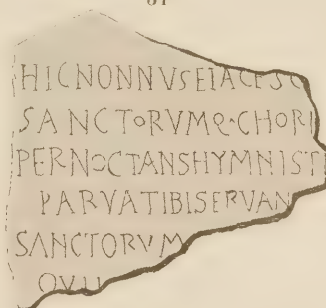 31
HICNONNVSEIACESC
SANCTORVMQ·CHORI
PERNOCTANSHYMNIST
PARVATIBISERVAN
SANCTORVM
QVI